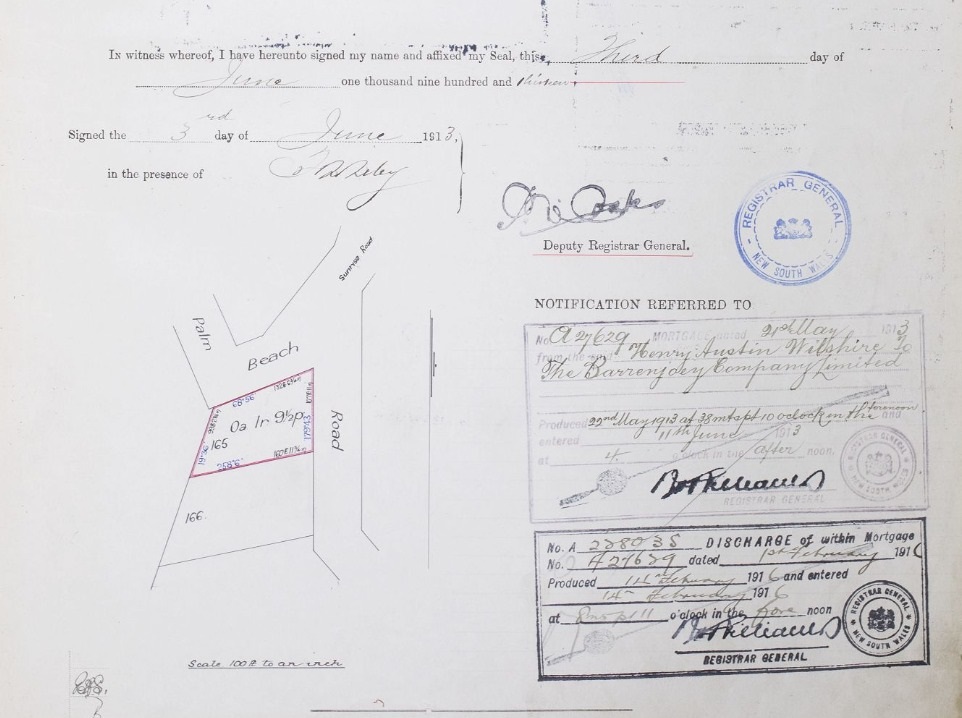 In witness whereof, I have hereunto signed my name and affixed my Seal, this Third day of
June one thousand nine hundred and thirteen.
Signed the 3rd day of June 1913,
in the presence of
Deputy Registrar General.
REGISTRAR GENERAL
NEW SOUTH WALES
Sunrise Road
Palm
Beach
Road
0a 1r 9½p
165
166
Scale 100ft to an inch
NOTIFICATION REFERRED TO
No. A 27629 MORTGAGE dated 21st May 1913
from the said Henry Austin Wilshire to
The Barrenjoey Company Limited
Produced 22nd May 1913 at 38 mts pt 10 oclock in the forenoon and
entered 11th June 1913
at 4 o'clock in the after noon.
REGISTRAR GENERAL
REGISTRAR GENERAL
NEW SOUTH WALES
No. A 228035 DISCHARGE of within Mortgage
No. A 27629 dated 1st February 1916
Produced 14th February 1916 and entered
14th February 1916
at 11 o'clock in the fore noon
REGISTRAR GENERAL
REGISTRAR GENERAL
NEW SOUTH WALES